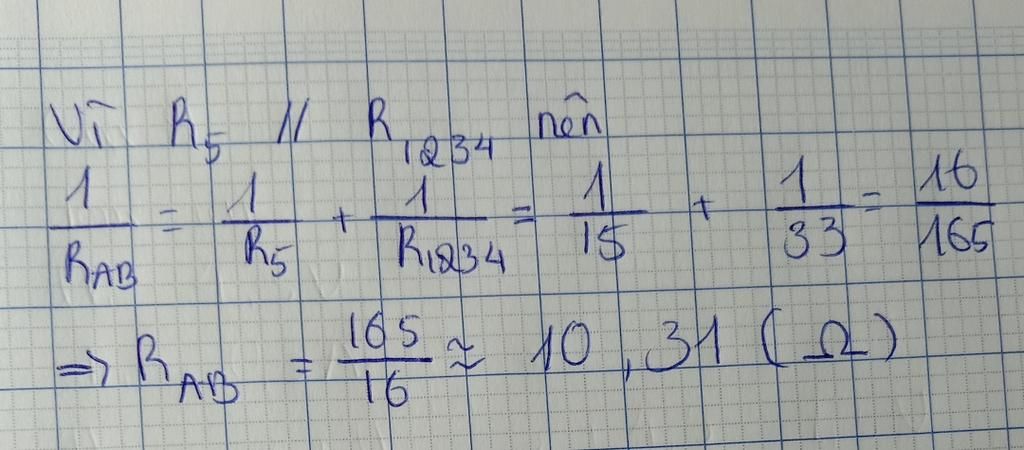 Vì R₅ // R₁₂₃₄ nên
1/R_AB = 1/R₅ + 1/R₁₂₃₄ = 1/15 + 1/33 = 16/165
=> R_AB = 165/16 ≈ 10,31 (Ω)